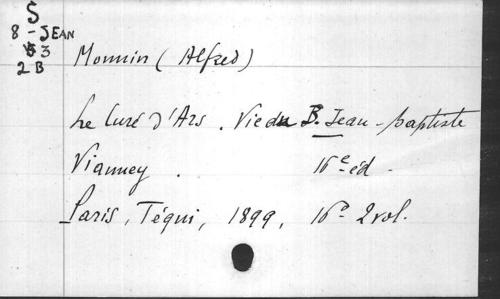 S
8 - JEAN
53
2B
Monnin (Alfred)
Le Curé d'Ars. Vie du B. Jean-Baptiste
Vianney. 16e éd.
Paris, Téqui, 1899, 16° 2 vol.